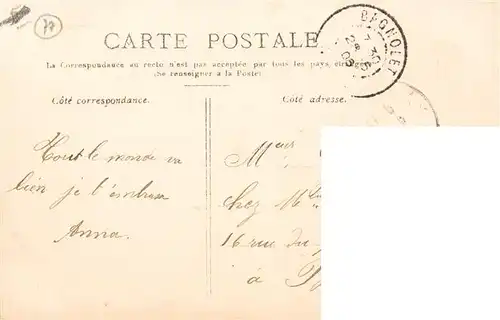 77
CARTE POSTALE
La Correspondance au recto n'est pas acceptée par tous les pays
(Se renseigner à la Poste)
BAGNOLET
Côté correspondance.
Côté adresse.
Tout le monde va
bien je t'embrasse
Anna.
chez
16 rue du
à